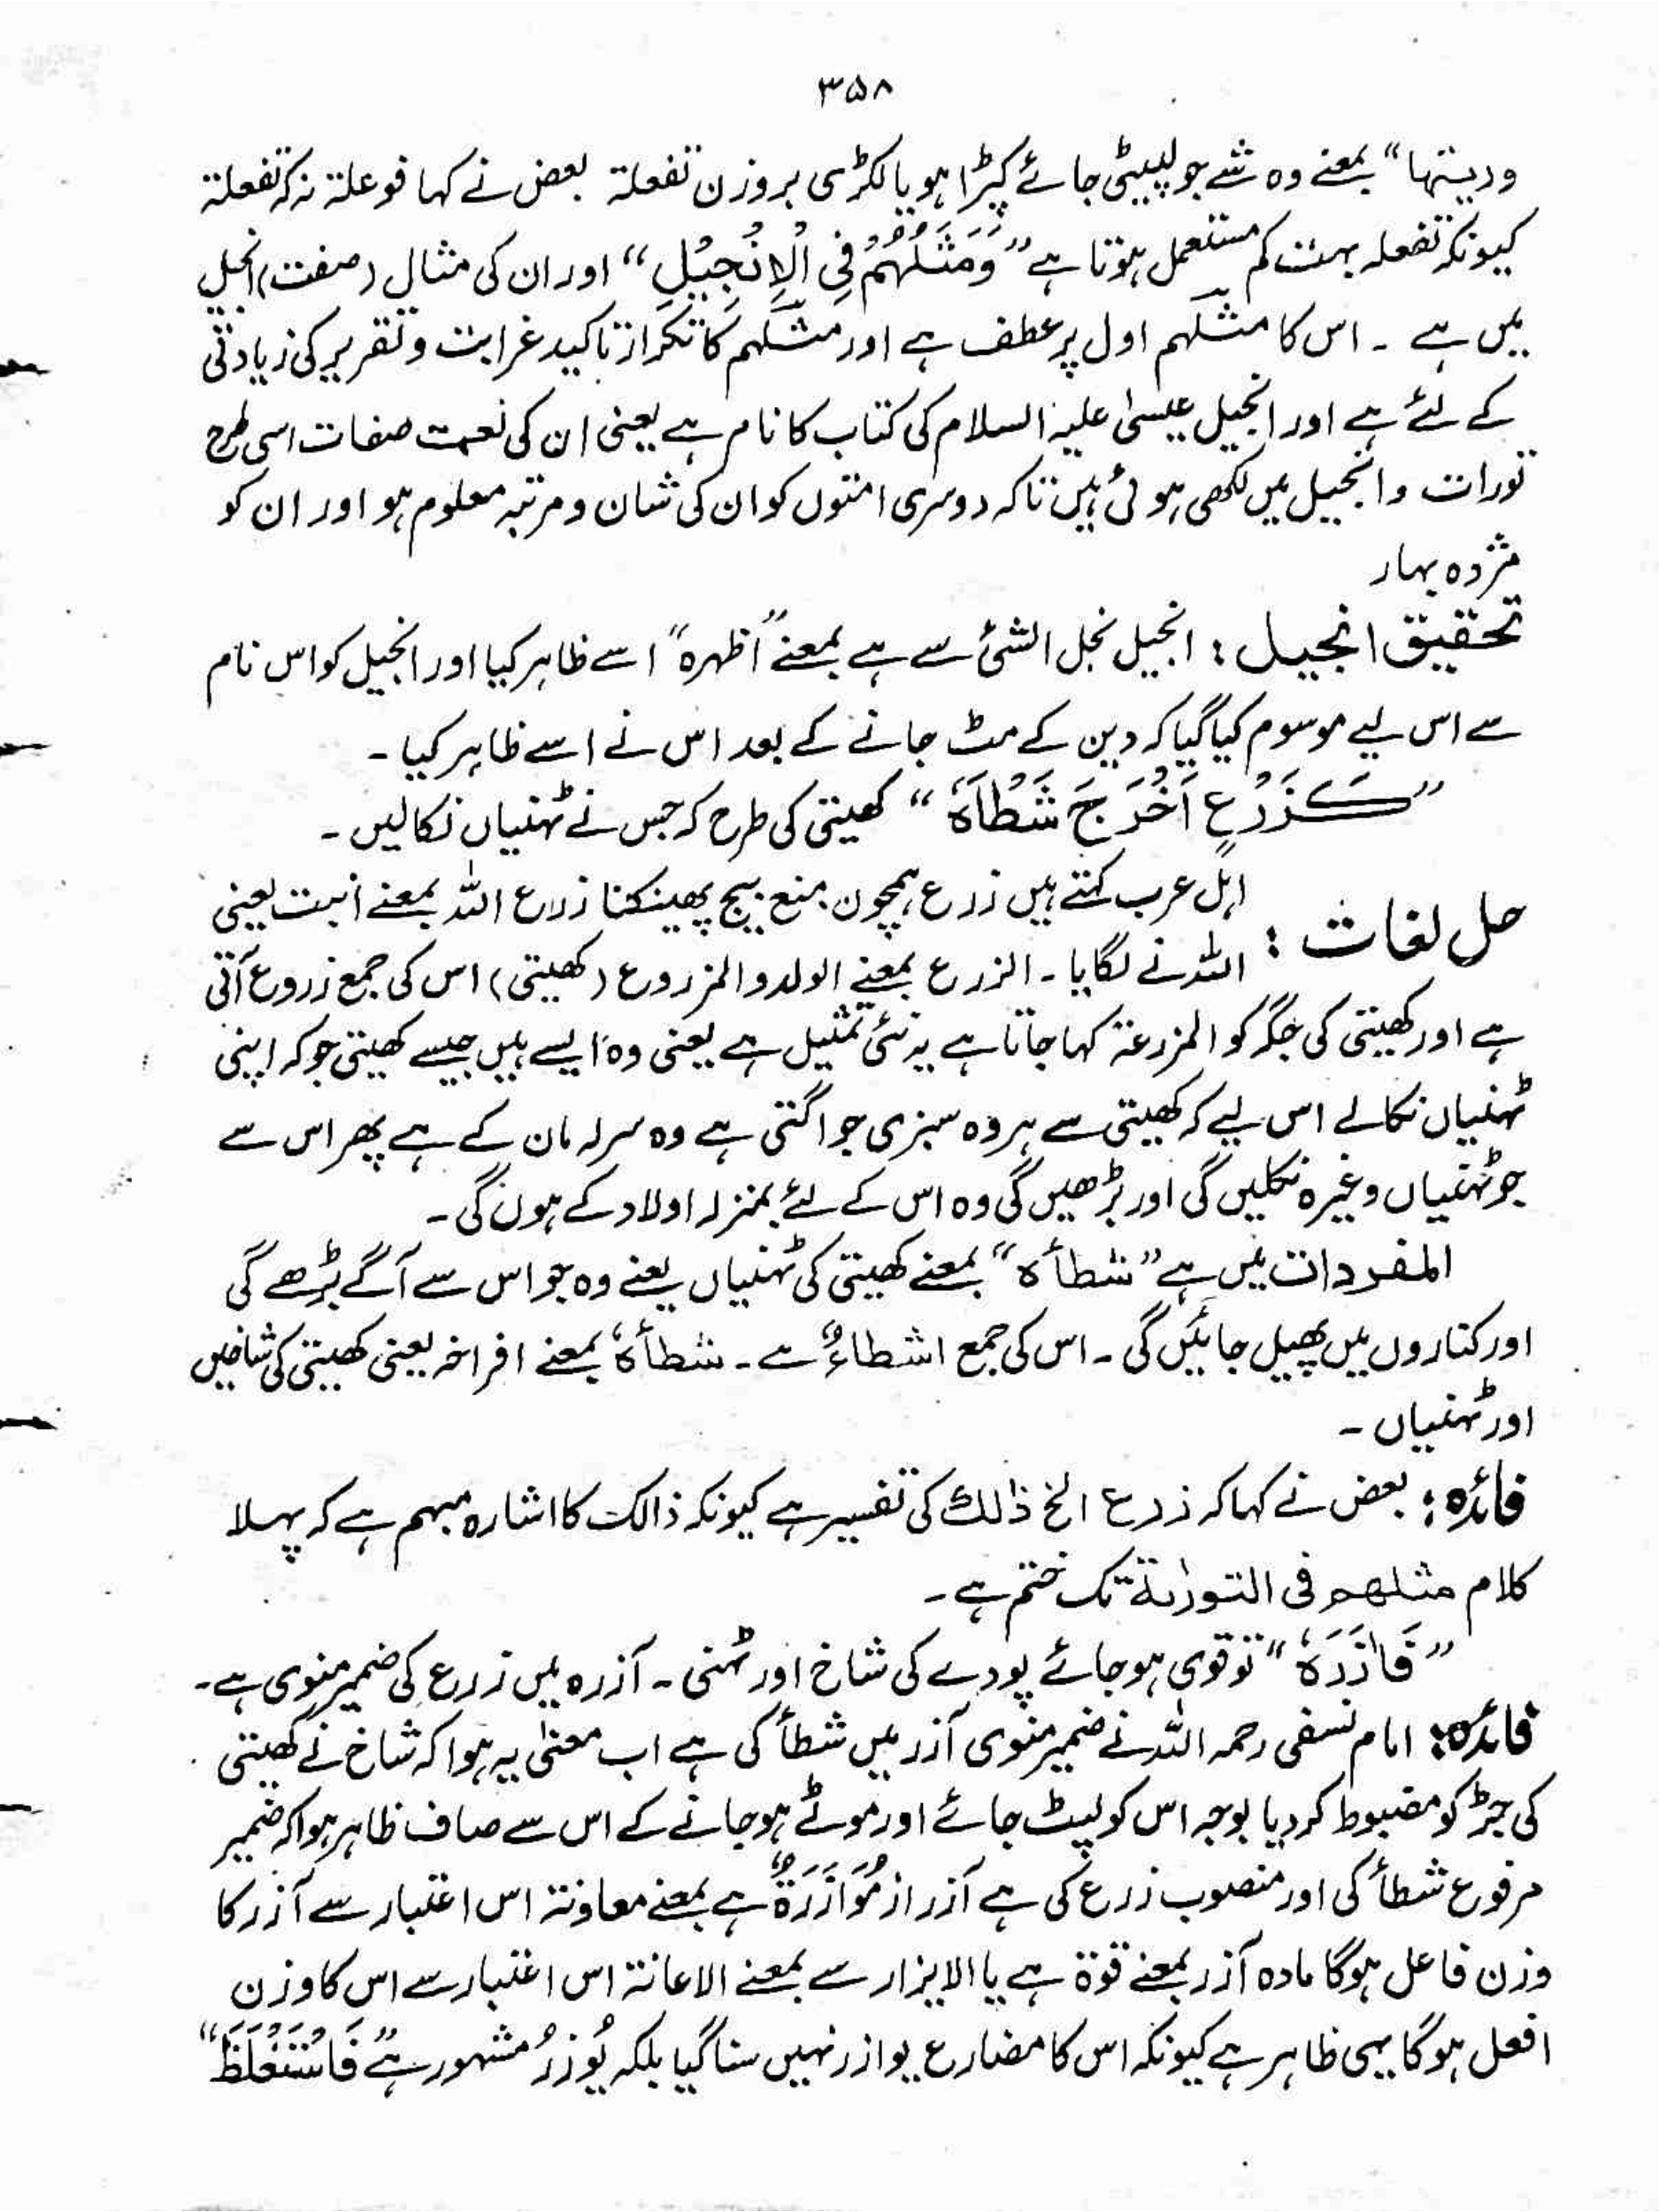 ۳۵۸
وریتہا“ بمعنے وہ شے جو لپیٹی جائے کپڑا ہو یا لکڑی بروزن تفعلۃ بعض نے کہا فوعلۃ نہ کہ تفعلۃ
کیونکہ تفعلہ بہت کم مستعمل ہوتا ہے ”وَمَثَلُهُمْ فِي الْاِنْجِيْلِ“ اور ان کی مثال (صفت) انجیل
میں ہے ۔ اس کا مثلہم اول پر عطف ہے اور مثلہم کا تکرار تاکید غرابت و تقریر کی زیادتی
کے لئے ہے اور انجیل عیسیٰ علیہ السلام کی کتاب کا نام ہے یعنی ان کی نعمت صفات اسی طرح
تورات و انجیل میں لکھی ہوئی ہیں تاکہ دوسری امتوں کو ان کی شان و مرتبہ معلوم ہو اور ان کو
مژدہ بہار
تحقیق انجیل : انجیل نجل الشئ سے ہے بمعنے ”اظہرہ“ اسے ظاہر کیا اور انجیل کو اس نام
سے اس لیے موسوم کیا گیا کہ دین کے مٹ جانے کے بعد اس نے اسے ظاہر کیا ۔
”كَزَرْعٍ اَخْرَجَ شَطْاَهٗ“ کھیتی کی طرح کہ جس نے ٹہنیاں نکالیں ۔
حل لغات : اہل عرب کہتے ہیں زرع ہمچون منع بیج پھینکنا زرع اللہ بمعنے انبت یعنی
اللہ نے لگایا ۔ الزرع بمعنے الولد والمزروع (کھیتی) اس کی جمع زروع آتی
ہے اور کھیتی کی جگہ کو المزرعۃ کہا جاتا ہے یہ نئی تمثیل ہے یعنی وہ ایسے ہیں جیسے کھیتی جو کہ اپنی
ٹہنیاں نکالے اس لیے کہ کھیتی سے ہر وہ سبزی جو اگتی ہے وہ سرلہ مان کے ہے پھر اس سے
جو ٹہنیاں وغیرہ نکلیں گی اور بڑھیں گی وہ اس کے لئے بمنزلہ اولاد کے ہوں گی ۔
المفردات میں ہے ”شطأہ“ بمعنے کھیتی کی ٹہنیاں یعنے وہ جو اس سے آگے بڑھے گی
اور کناروں میں پھیل جائیں گی ۔ اس کی جمع اشطاءٌ ہے ۔ شطأہٗ بمعنے افراخہ یعنی کھیتی کی شاخیں
اور ٹہنیاں ۔
فائدہ : بعض نے کہا کہ زرع الخ ذٰلک کی تفسیر ہے کیونکہ ذالک کا اشارہ مبہم ہے کہ پہلا
کلام مثلھم فی التورٰىة تک ختم ہے ۔
”فَاٰزَرَهٗ“ تو قوی ہو جائے پودے کی شاخ اور ٹہنی ۔ آزرہ میں زرع کی ضمیر منوی ہے ۔
فائدہ : امام نسفی رحمہ اللہ نے ضمیر منوی آزر میں شطأ کی ہے اب معنیٰ یہ ہوا کہ شاخ نے کھیتی
کی جڑ کو مضبوط کر دیا بوجہ اس کو لپٹ جائے اور موٹے ہو جانے کے اس سے صاف ظاہر ہوا کہ ضمیر
مرفوع شطأ کی اور منصوب زرع کی ہے آزر از مُوَازَرَةٌ ہے بمعنے معاونۃ اس اعتبار سے آزر کا
وزن فاعل ہوگا مادہ آزر بمعنے قوۃ ہے یا الایزار سے بمعنے الاعانۃ اس اعتبار سے اس کا وزن
افعل ہوگا یہی ظاہر ہے کیونکہ اس کا مضارع یوازر نہیں سنا گیا بلکہ یُوزرُ مشہور ہے ”فَاسْتَغْلَظَ“